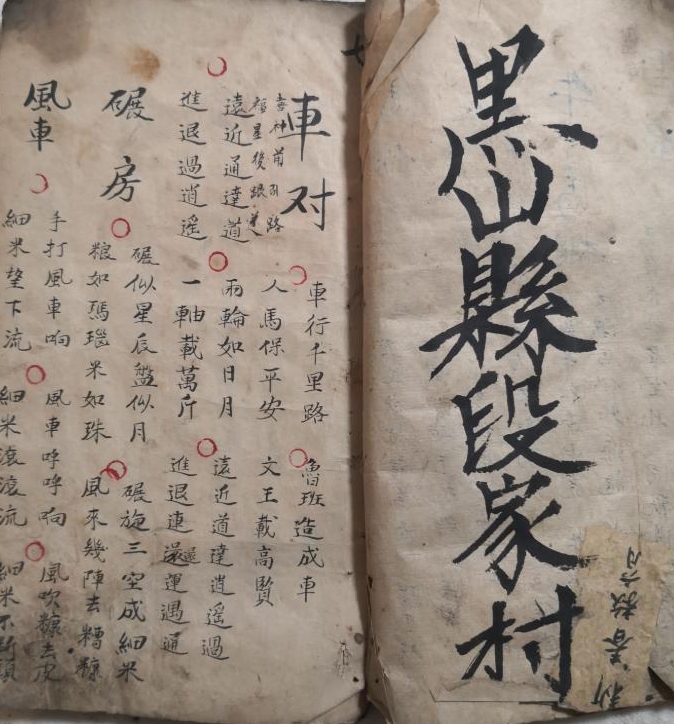 黑山縣段家村
車对
喜神前引路
福星後跟送
車行千里路
人馬保平安
魯班造成車
文王載高賢
遠近通達道
進退過逍遥
両輪如日月
一軸載萬斤
遠近道達逍遥過
進退連還運遇通
碾房
碾似星辰盤似月
粮如瑪瑙米如珠
碾旋三空成細米
風來幾陣去糟糠
風車
手打風車响
細米望下流
風車呼呼响
細米滾滾流
風吹糠去皮
細米不斷頭